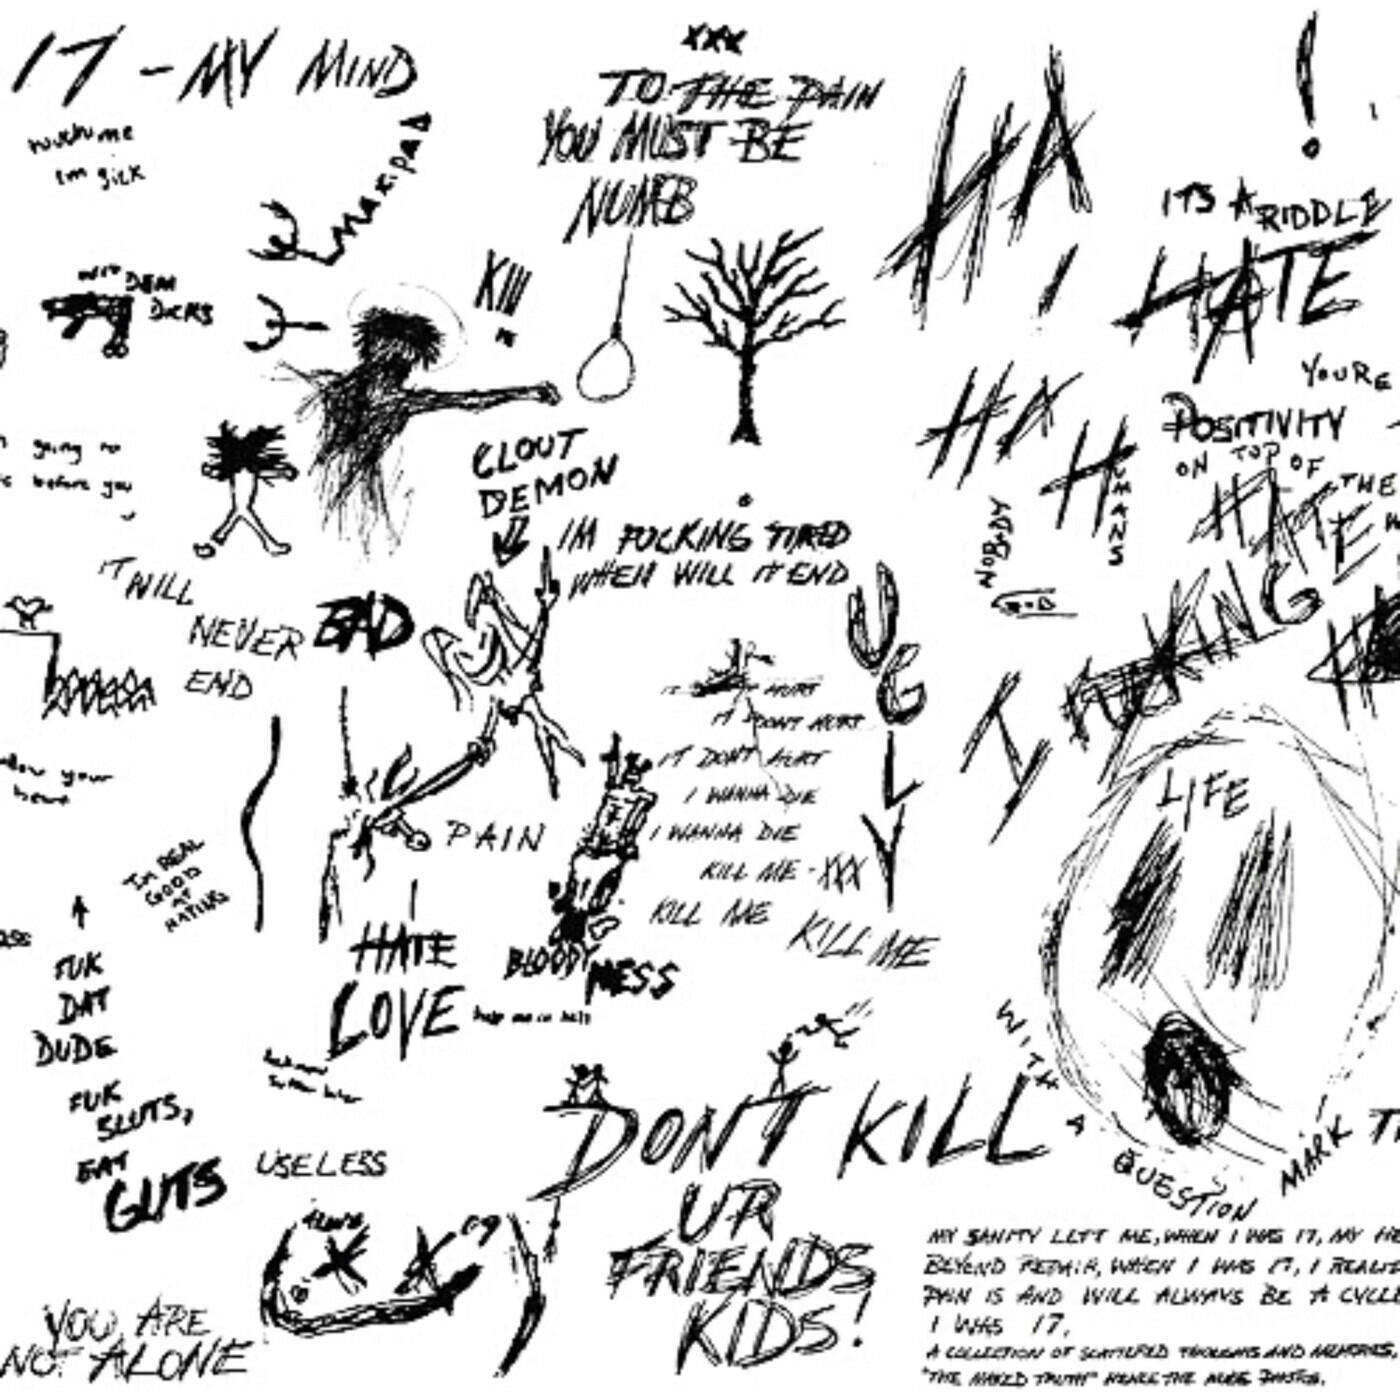 17 - MY MIND
im sick
XXX
TO THE PAIN
YOU MUST BE
NUMB
HA
HA
HA
!
ITS A RIDDLE
HATE
YOURE
POSITIVITY
ON TOP OF
HATE
THE
HUMANS
NOBODY
KIll
DEM
DICKS
CLOUT
DEMON
going no
before you
IM FUCKING TIRED
WHEN WILL IT END
IT WILL
NEVER
END
BAD
UGLY
HURT
IT DONT HURT
IT DONT HURT
I WANNA DIE
I WANNA DIE
KILL ME - XXX
KILL ME
KILL ME
I FUCKING
LIFE
your
PAIN
IM REAL
GOOD
AT
HATING
HATE
LOVE
BLOODY MESS
FUK
DAT
DUDE
FUK
SLUTS,
EAT
GUTS
USELESS
DONT KILL
UR
FRIENDS
KIDS!
WITH A QUESTION MARK
YOU ARE
NOT ALONE
MY SANITY LEFT ME, WHEN I WAS 17, MY
BEYOND REPAIR, WHEN I WAS 17, I
PAIN IS AND WILL ALWAYS BE A
I WAS 17.
A COLLECTION OF SCATTERED THOUGHTS AND MEMORIES,
"THE NAKED TRUTH" HENCE THE NUDE